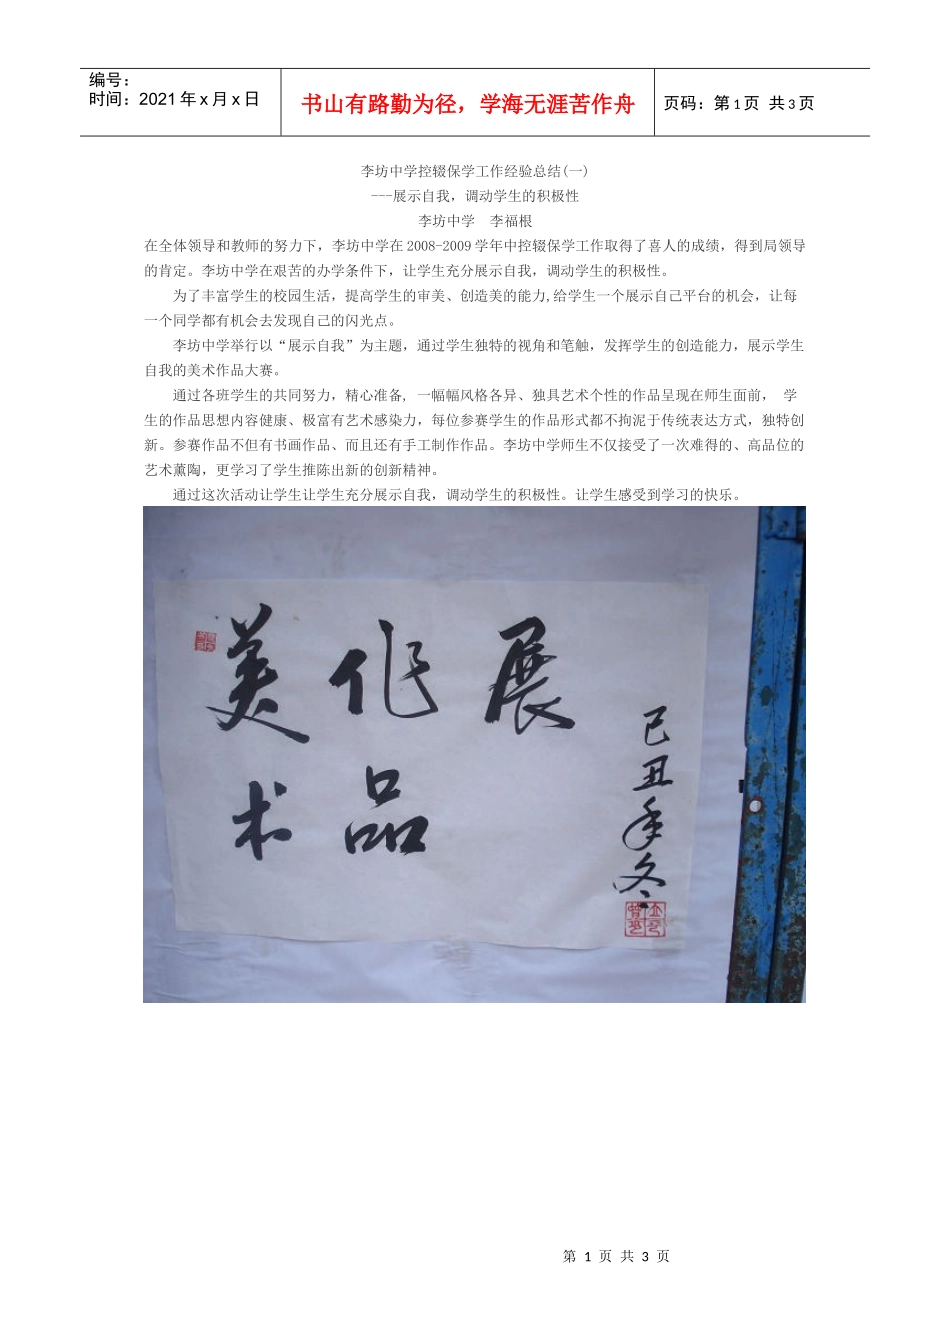 编号：
时间：2021年x月x日
书山有路勤为径，学海无涯苦作舟
页码：第1页 共3页
李坊中学控辍保学工作经验总结(一)
---展示自我，调动学生的积极性
李坊中学 李福根
在全体领导和教师的努力下，李坊中学在2008-2009学年中控辍保学工作取得了喜人的成绩，得到局领导
的肯定。李坊中学在艰苦的办学条件下，让学生充分展示自我，调动学生的积极性。
为了丰富学生的校园生活，提高学生的审美、创造美的能力,给学生一个展示自己平台的机会，让每
一个同学都有机会去发现自己的闪光点。
李坊中学举行以“展示自我”为主题，通过学生独特的视角和笔触，发挥学生的创造能力，展示学生
自我的美术作品大赛。
通过各班学生的共同努力，精心准备, 一幅幅风格各异、独具艺术个性的作品呈现在师生面前， 学
生的作品思想内容健康、极富有艺术感染力，每位参赛学生的作品形式都不拘泥于传统表达方式，独特创
新。参赛作品不但有书画作品、而且还有手工制作作品。李坊中学师生不仅接受了一次难得的、高品位的
艺术薰陶，更学习了学生推陈出新的创新精神。
通过这次活动让学生让学生充分展示自我，调动学生的积极性。让学生感受到学习的快乐。
美术
作品
展
已丑年冬
第 1 页 共 3 页